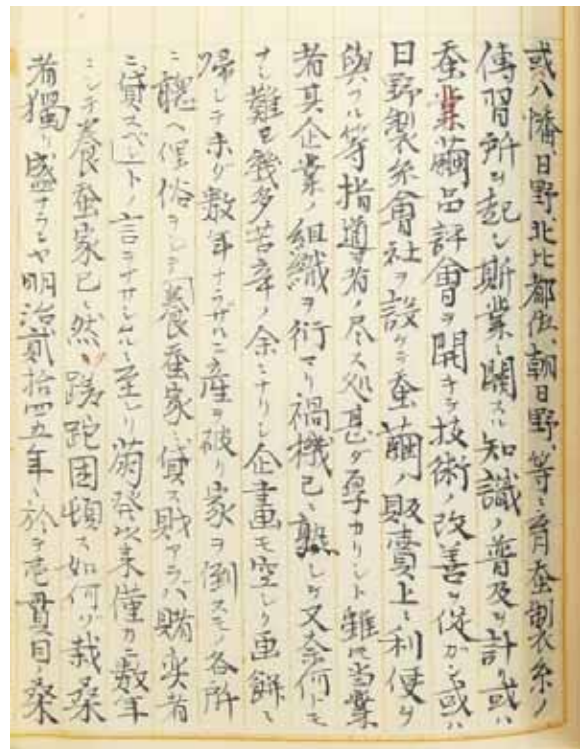 或ハ八幡、日野、北比都佐、朝日野、等ニ育蚕製糸ノ
傳習所ヲ起シ斯業ニ関スル知識ノ普及ヲ計リ或ハ
蚕業繭品評會ヲ開キテ技術ノ改善ヲ促カシ或ハ
日野製糸會社ヲ設ケテ蚕繭ノ販賣上ニ利便ヲ
與フル等指導者ノ尽ス処甚ダ厚カリシト雖ﾓ当業
者其企業ノ組織ヲ衍マリ禍機已ニ熟シケ又奈何トモ
ナシ難ク幾多苦辛ノ余ニナリシ企画モ空シク画餅ニ
帰シテ未ダ数年ナラザルニ産ヲ破リ家ヲ倒スモノ各所
ニ聴ヘ俚俗ヲシテ「養蚕家ニ貸ス財アラバ賭奕者
ニ貸スベシ」トノ言ヲナサシムルニ至レリ萌發以来僅カニ数年
ニシテ養蚕家已ニ然リ蹉跎困頓ス如何ゾ栽桑
者獨リ盛ナランヤ明治貳拾四五年ニ於テ壱貫目ノ桑